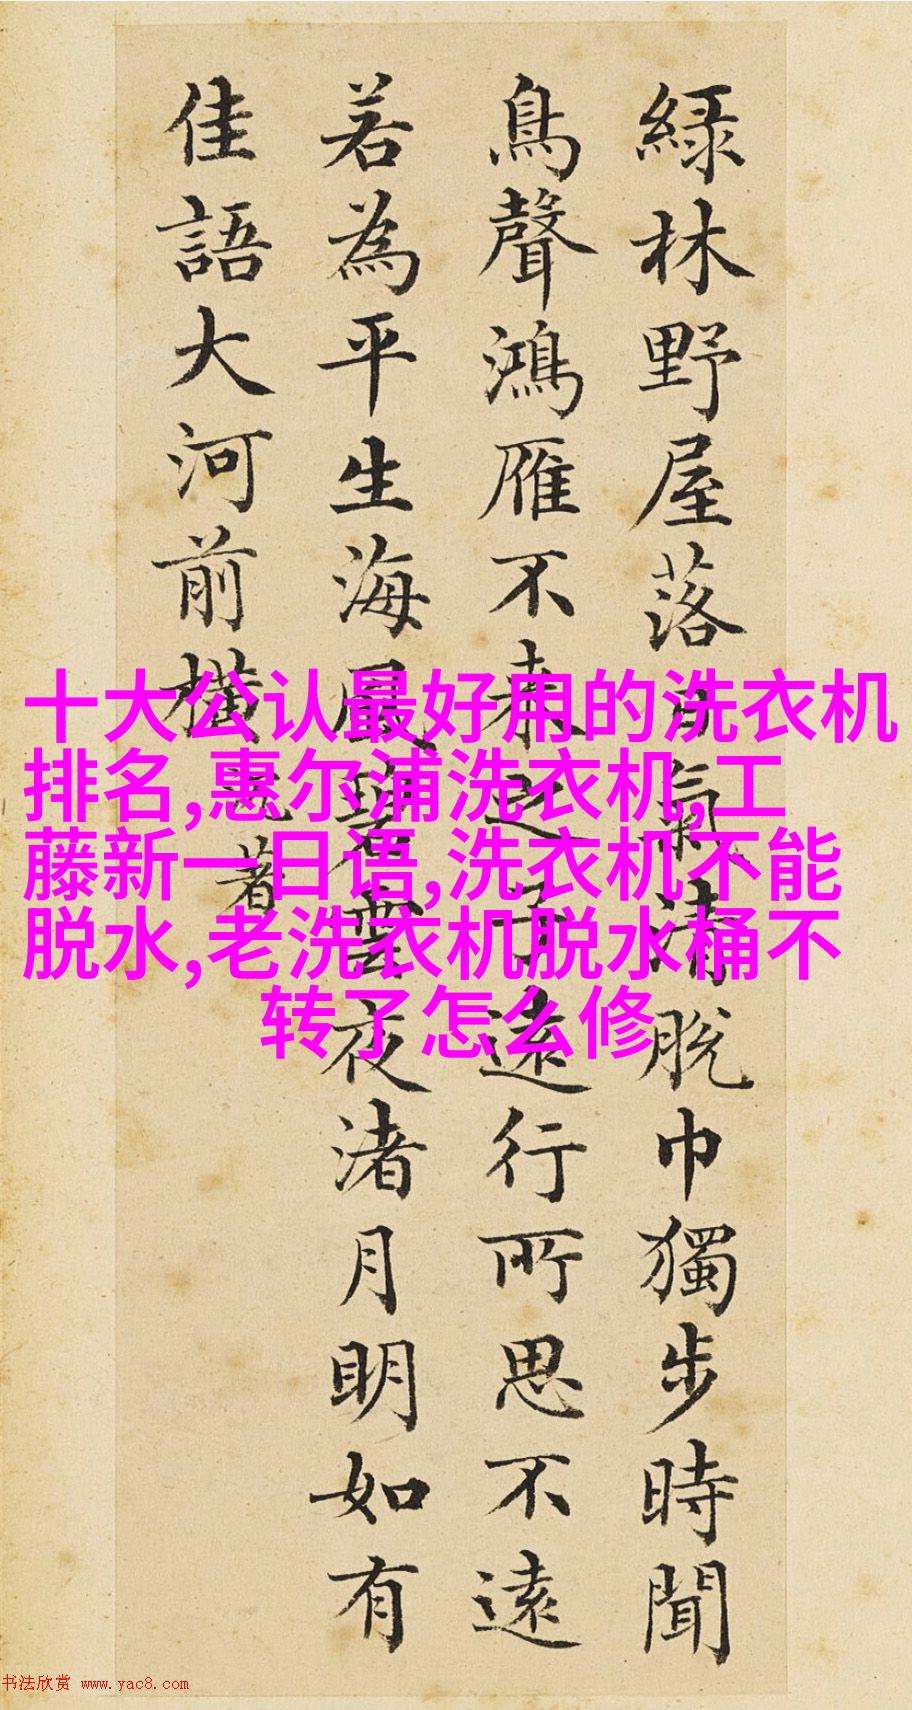 綠林野屋落日氣清脫巾獨步時聞
鳥聲鴻雁不來之子遠行所思不遠
若為平生海風碧雲夜渚月明如有
佳語大河前橫
著
十大公认最好用的洗衣机
排名,惠尔浦洗衣机,工
藤新一日语,洗衣机不能
脱水,老洗衣机脱水桶不
转了怎么修
书法欣赏 www.yac8.com